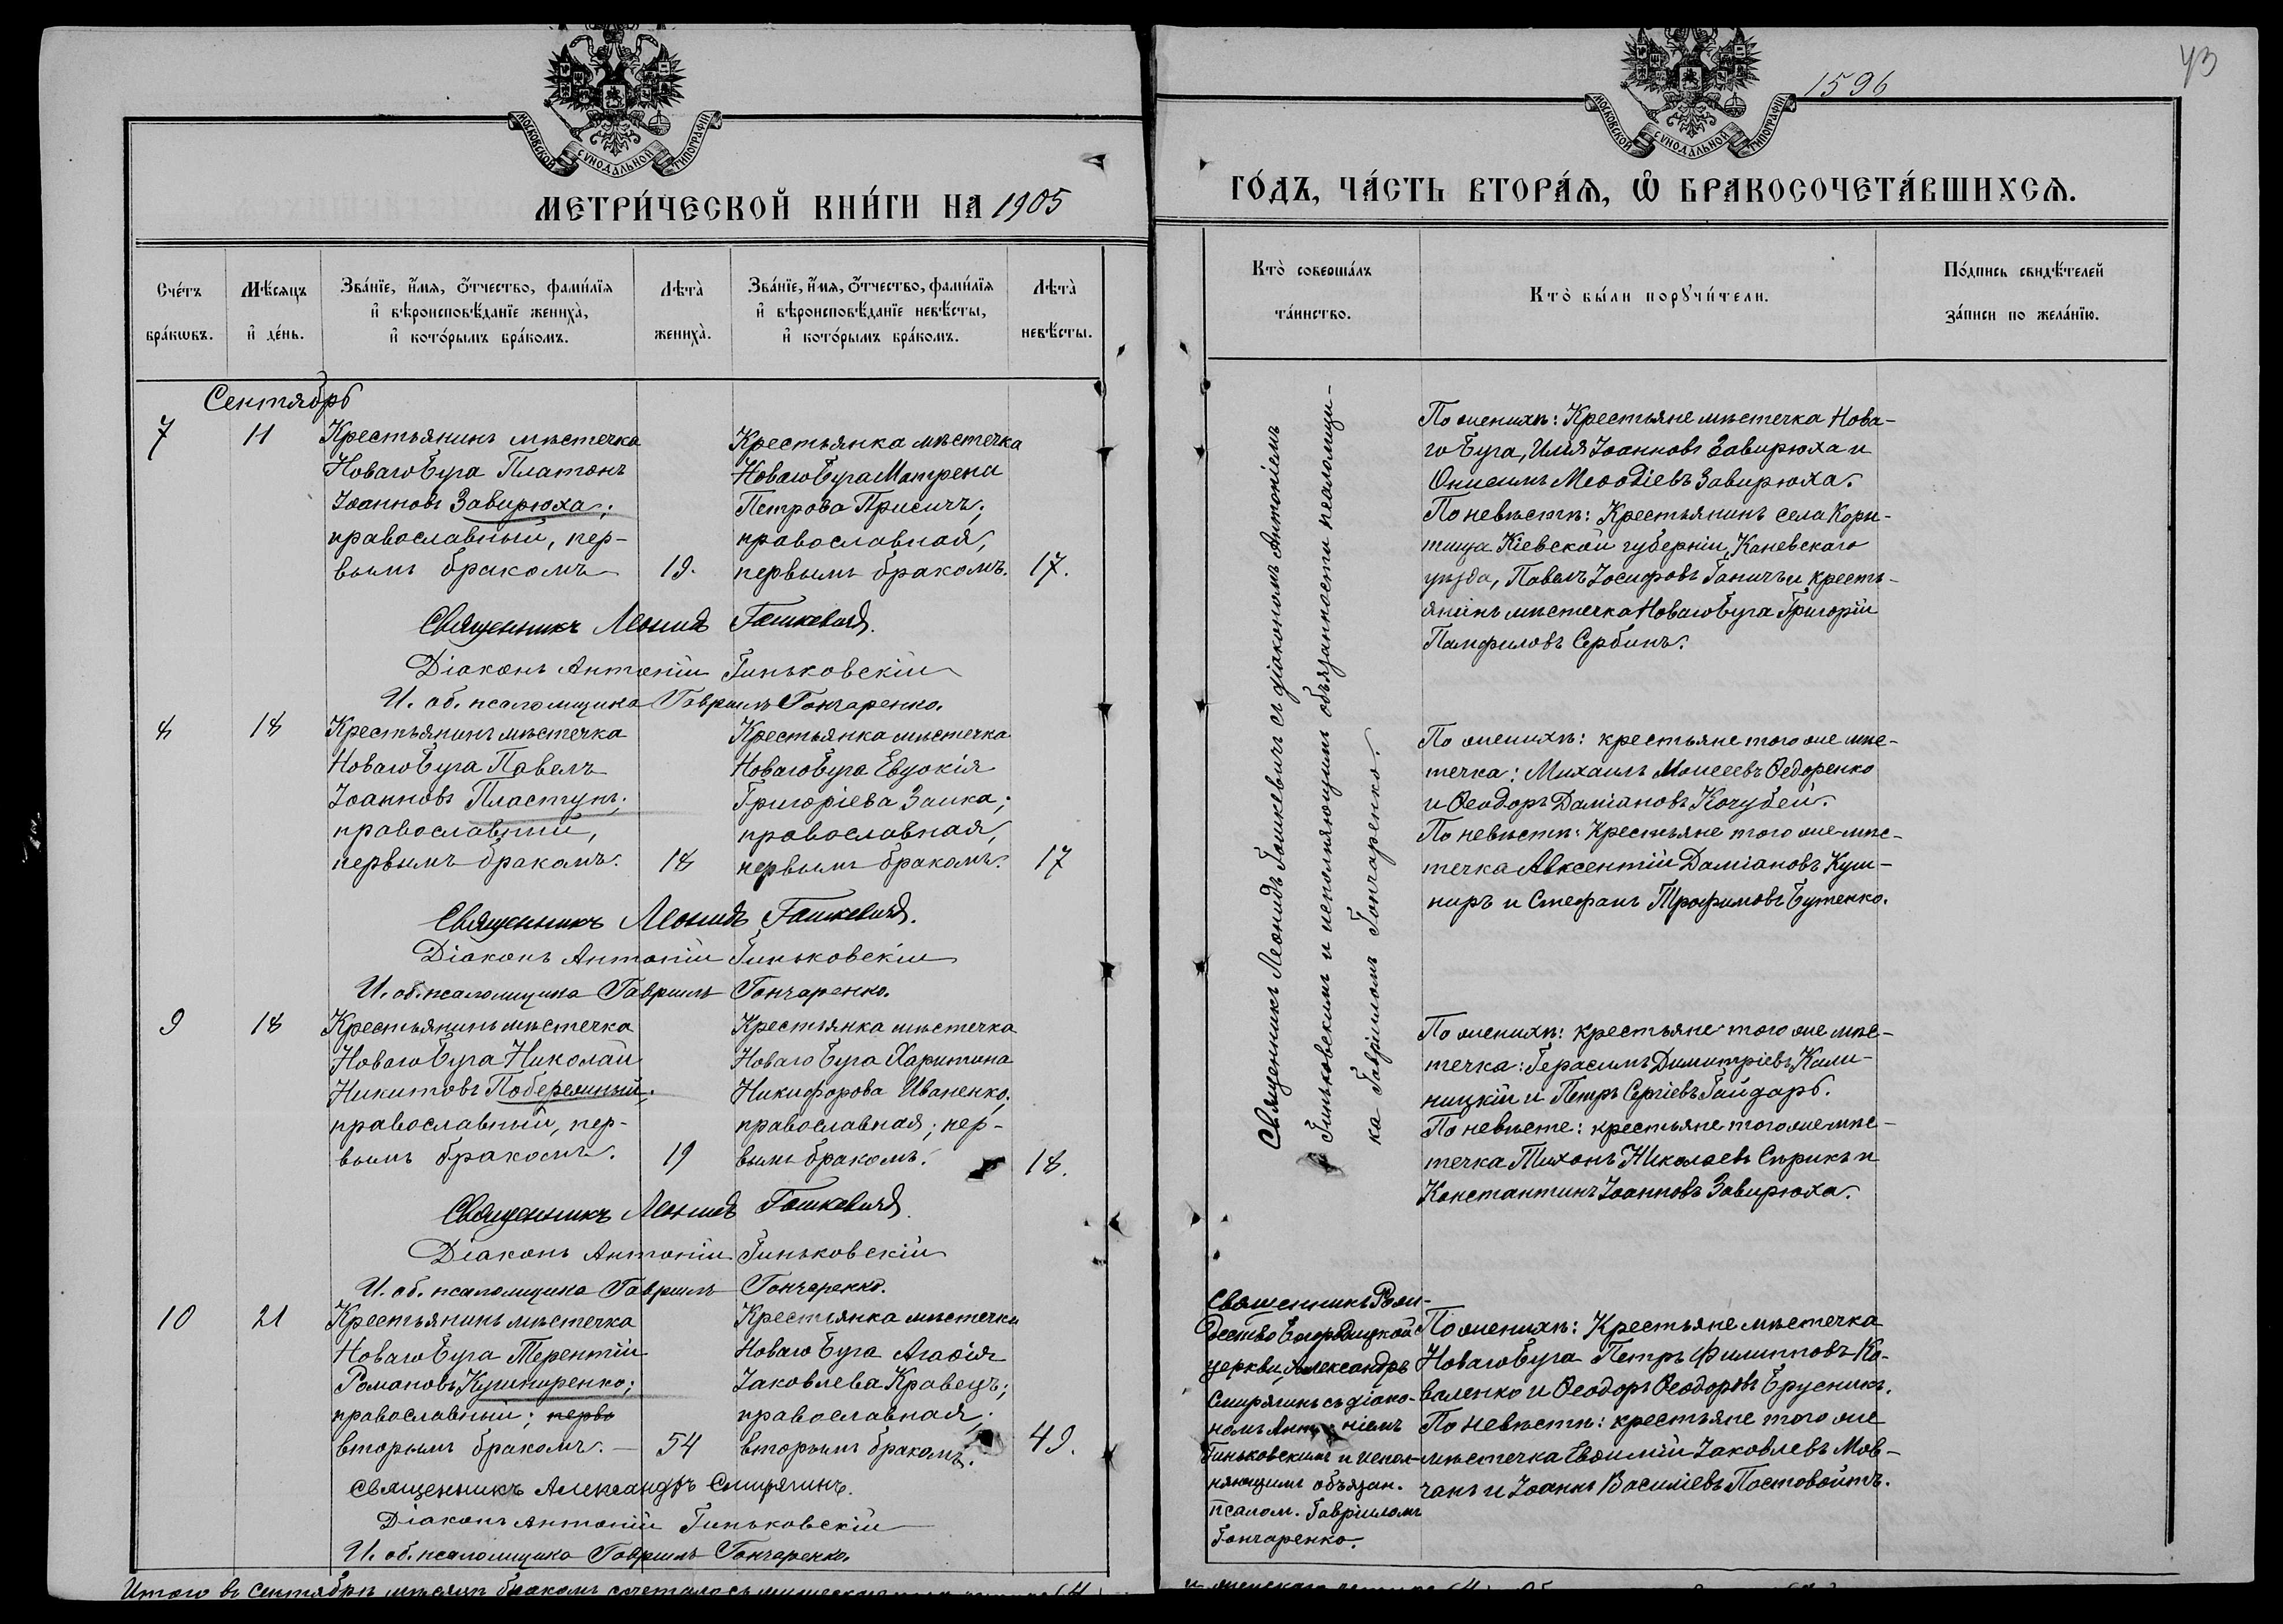 МОСКОВСКОЙ СѴНОДАЛЬНОЙ ТИПОГРАФІИ
МЕТРИ́ЧЕСКОЙ КНИ́ГИ НА 1905
Сче́тъ бра́кωвъ.
Мѣ́сяцъ и҆ де́нь.
Зва́нїе, и҆́мя, ѻ҆́тчество, фами́лїя
и҆ вѣроисповѣ́данїе жениха̀,
и҆ кото́рымъ бра́комъ.
Лѣта̀ жениха̀.
Зва́нїе, и҆́мя, ѻ҆́тчество, фами́лїя
и҆ вѣроисповѣ́данїе невѣ́сты,
и҆ кото́рымъ бра́комъ.
Лѣта̀ невѣ́сты.
Сентябрь
7
11
Крестьянинъ мѣстечка
Новаго Буга Платонъ
Іоанновъ Завирюха;
православный, пер-
вымъ бракомъ
19.
Крестьянка мѣстечка
Новаго Буга Матрена
Петрова Присичъ;
православная,
первымъ бракомъ.
17.
Священникъ Леонидъ Гошкевичъ.
Діаконъ Антоній Гиньковскій
И. об. псаломщика Гавріилъ Гончаренко.
8
18
Крестьянинъ мѣстечка
Новаго Буга Павелъ
Іоанновъ Пластунъ;
православный,
первымъ бракомъ.
18
Крестьянка мѣстечка
Новаго Буга Евдокія
Григоріева Заика;
православная,
первымъ бракомъ.
17
Священникъ Леонидъ Гошкевичъ.
Діаконъ Антоній Гиньковскій
И. об. псаломщика Гавріилъ Гончаренко.
9
18
Крестьянинъ мѣстечка
Новаго Буга Николай
Никитовъ Побережный;
православный, пер-
вымъ бракомъ.
19
Крестьянка мѣстечка
Новаго Буга Харитина
Никифорова Иваненко,
православная; пер-
вымъ бракомъ.
18.
Священникъ Леонидъ Гошкевичъ.
Діаконъ Антоній Гиньковскій
И. об. псаломщика Гавріилъ Гончаренко.
10
21
Крестьянинъ мѣстечка
Новаго Буга Терентій
Романовъ Кушнаренко;
православный; перво
вторымъ бракомъ. —
54
Крестьянка мѣстечка
Новаго Буга Агафія
Іаковлева Кравецъ;
православная;
вторымъ бракомъ.
49.
Священникъ Александръ Смирягинъ.
Діаконъ Антоній Гиньковскій
И. об. псаломщика Гавріилъ Гончаренко.
Итого въ Сентябрѣ мѣсяцѣ бракомъ сочеталось
43
1596
МОСКОВСКОЙ СѴНОДАЛЬНОЙ ТИПОГРАФІИ
ГО́ДЪ, ЧА́СТЬ ВТОРА́Я, Ѽ БРАКОСОЧЕТА́ВШИХСЯ.
Кто̀ соверша́лъ та́инство.
Кто̀ бы́ли порꙋчи́тели.
По́дпись свидѣ́телей за́писи по жела́нїю.
Священникъ Леонидъ Гошкевичъ съ діакономъ Антоніемъ
Гиньковскимъ и исполняющимъ обязанности псаломщи-
ка Гавріиломъ Гончаренко.
По женихѣ: Крестьяне мѣстечка Нова-
го Буга, Илія Іоанновъ Завирюха и
Онисимъ Меѳодіевъ Завирюха.
По невѣстѣ: Крестьянинъ села Коры-
тища Кіевской губерніи, Каневскаго
уѣзда, Павелъ Іосифовъ Ганичъ и кресть-
янинъ мѣстечка Новаго Буга Григорій
Памфиловъ Сербинъ.
По женихѣ: крестьяне того же мѣс-
течка: Михаилъ Моисеевъ Ѳедоренко
и Ѳеодоръ Даміановъ Кочубей.
По невѣстѣ: Крестьяне того же мѣс-
течка Авксентій Даміановъ Куш-
ниръ и Стефанъ Трофимовъ Бутенко.
По женихѣ: крестьяне того же мѣс-
течка: Герасимъ Димитріевъ Кали-
ницкій и Петръ Сергіевъ Гайдарь.
По невѣсте: крестьяне того же мѣс-
течка Тихонъ Николаевъ Сѣрикъ и
Константинъ Іоанновъ Завирюха.
Священникъ Рож-
дество Богородицкой
церкви, Александръ
Смирягинъ съ діако-
номъ Антоніемъ
Гиньковскимъ и испол-
няющимъ объязан.
псалом. Гавріиломъ
Гончаренко.
По женихѣ: Крестьяне мѣстечка
Новаго Буга Петръ Филипповъ Ко-
валенко и Ѳеодоръ Ѳеодоровъ Брусникъ.
По невѣстѣ: крестьяне того же
мѣстечка Евѳимій Іаковлевъ Мов-
чанъ и Іоаннъ Василіевъ Постовойтъ.